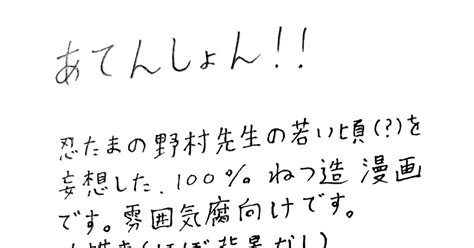 あてんしょん!!
忍たまの野村先生の若い頃(?)を
妄想した、100%ねつ造 漫画
です。雰囲気腐向けです。